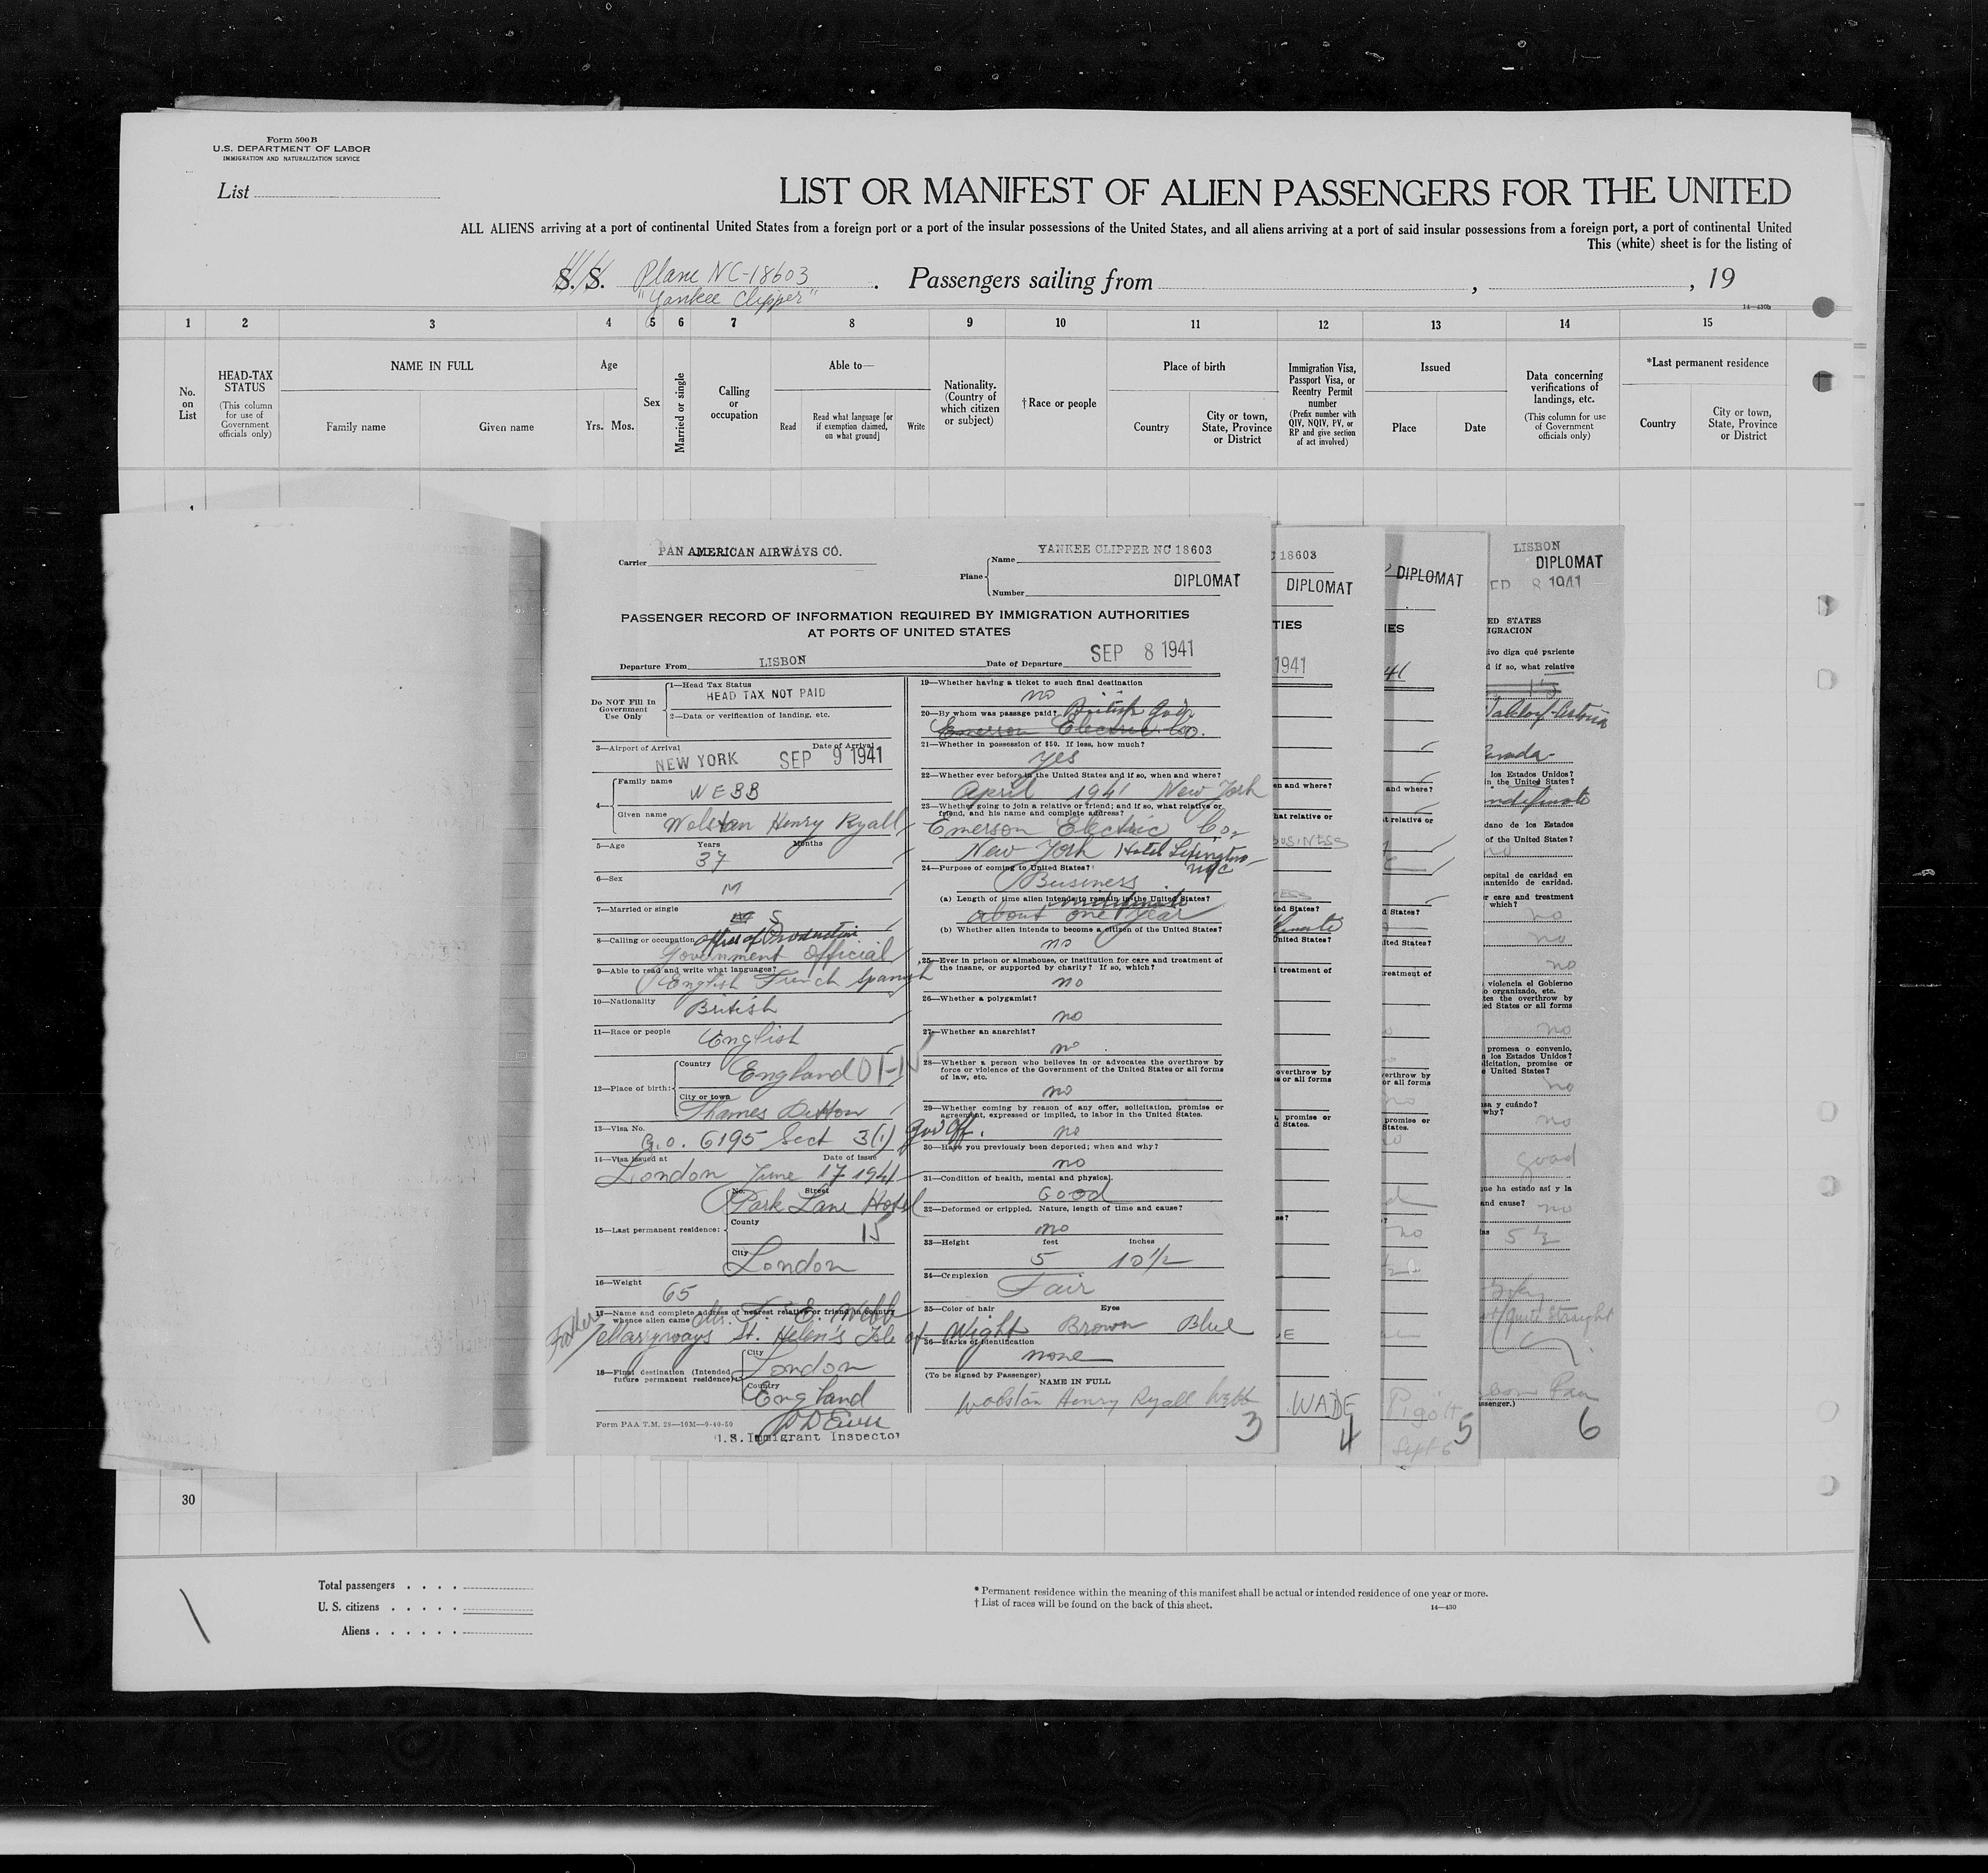 Form 500 B
U.S. DEPARTMENT OF LABOR
IMMIGRATION AND NATURALIZATION SERVICE
List
LIST OR MANIFEST OF ALIEN PASSENGERS FOR THE UNITED
ALL ALIENS arriving at a port of continental United States from a foreign port or a port of the insular possessions of the United States, and all aliens arriving at a port of said insular possessions from a foreign port, a port of continental United
This (white) sheet is for the listing of
S. S. Plane NC-18603 . Passengers sailing from , , 19
"Yankee Clipper"
14—430b
1 2 3 4 5 6 7 8 9 10 11 12 13 14 15
No. on List
HEAD-TAX STATUS
(This column for use of Government officials only)
NAME IN FULL
Family name Given name
Age
Yrs. Mos.
Sex
Married or single
Calling or occupation
Able to—
Read
Read what language [or if exemption claimed, on what ground]
Write
Nationality. (Country of which citizen or subject)
† Race or people
Place of birth
Country
City or town, State, Province or District
Immigration Visa, Passport Visa, or Reentry Permit number
(Prefix number with QIV, NQIV, PV, or RP and give section of act involved)
Issued
Place Date
Data concerning verifications of landings, etc.
(This column for use of Government officials only)
*Last permanent residence
Country
City or town, State, Province or District
Carrier PAN AMERICAN AIRWAYS CO.
Plane
Name YANKEE CLIPPER NC 18603
DIPLOMAT
Number
PASSENGER RECORD OF INFORMATION REQUIRED BY IMMIGRATION AUTHORITIES
AT PORTS OF UNITED STATES
Departure From LISBON Date of Departure SEP 8 1941
Do NOT Fill In Government Use Only
1—Head Tax Status
HEAD TAX NOT PAID
2—Data or verification of landing, etc.
3—Airport of Arrival Date of Arrival
NEW YORK SEP 9 1941
4— Family name
WEBB
Given name Wolstan Henry Ryall
5—Age Years Months
37
6—Sex
M
7—Married or single
S
8—Calling or occupation Office of Production
Government Official
9—Able to read and write what languages?
English French Spanish
10—Nationality
British
11—Race or people
English
12—Place of birth:
Country
England
City or town
Thames Ditton
13—Visa No.
G.O. 6195 Sect 3(1) Gov Off.
14—Visa issued at Date of issue
London June 17 1941
No. Street
Park Lane Hotel
15—Last permanent residence:
County
15
City
London
16—Weight
65
17—Name and complete address of nearest relative or friend in country
whence alien came Mr. F. E. Webb
Father
Marryways St. Helen's Isle of Wight
18—Final destination (Intended future permanent residence)
City
London
Country
England
Form PAA T.M. 28—10M—9-40-50
U.S. Immigrant Inspector
19—Whether having a ticket to such final destination
no
20—By whom was passage paid? British Gov.
Emerson Electric Co.
21—Whether in possession of $50. If less, how much?
yes
22—Whether ever before in the United States and if so, when and where?
April 1941 New York
23—Whether going to join a relative or friend; and if so, what relative or
friend, and his name and complete address?
Emerson Electric Co.
New York Hotel Lexington
NYC
24—Purpose of coming to United States?
Business
(a) Length of time alien intends to remain in the United States?
about one year
(b) Whether alien intends to become a citizen of the United States?
no
25—Ever in prison or almshouse, or institution for care and treatment of
the insane, or supported by charity? If so, which?
no
26—Whether a polygamist?
no
27—Whether an anarchist?
no
28—Whether a person who believes in or advocates the overthrow by
force or violence of the Government of the United States or all forms
of law, etc.
no
29—Whether coming by reason of any offer, solicitation, promise or
agreement, expressed or implied, to labor in the United States.
no
30—Have you previously been deported; when and why?
no
31—Condition of health, mental and physical.
Good
32—Deformed or crippled. Nature, length of time and cause?
no
33—Height feet inches
5 10½
34—Complexion
Fair
35—Color of hair Eyes
Brown Blue
36—Marks of identification
none
(To be signed by Passenger)
NAME IN FULL
Wolstan Henry Ryall Webb
3
18603
DIPLOMAT
TIES
1941
en and where?
hat relative or
BUSINESS
ted States?
United States?
treatment of
overthrow by
s or all forms
, promise or
d States.
WADE
4
DIPLOMAT
IES
41
and where?
t relative or
d States?
ited States?
reatment of
verthrow by
or all forms
no
promise or
States.
no
Pigott
Sept 6
5
LISBON
DIPLOMAT
8 1941
ED STATES
IGRACION
ivo diga qué pariente
d if so, what relative
los Estados Unidos?
in the United States?
indefinite
dano de los Estados
of the United States?
no
ospital de caridad en
antenido de caridad.
r care and treatment
which?
no
no
no
violencia el Gobierno
o organizado, etc.
tes the overthrow by
ed States or all forms
no
promesa o convenio,
los Estados Unidos?
licitation, promise or
e United States?
no
sa y cuándo?
why?
no
good
que ha estado así y la
and cause?
no
5 ½
quite straight
ssenger.)
6
30
Total passengers . . . .
U. S. citizens . . . . .
Aliens . . . . . .
* Permanent residence within the meaning of this manifest shall be actual or intended residence of one year or more.
† List of races will be found on the back of this sheet.
14—430